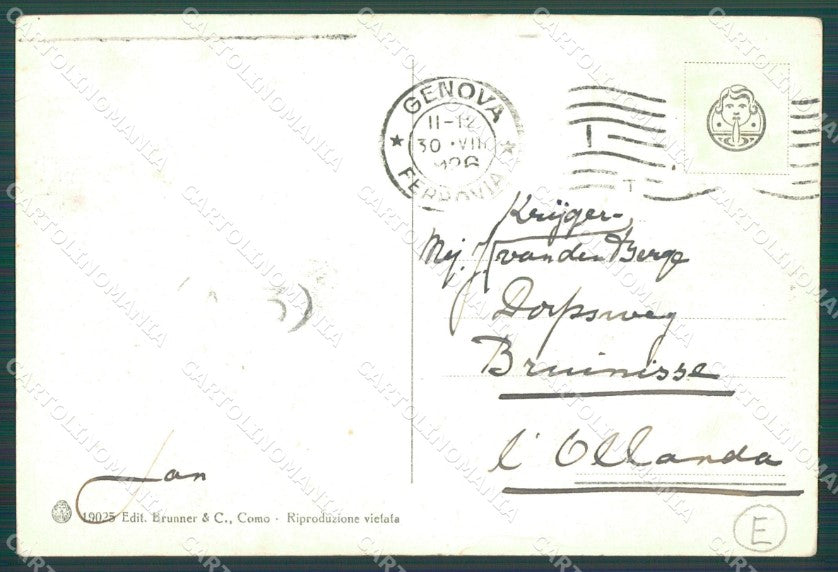 GENOVA
11-12
30 VIII
FERROVIA
Krijger-
Mej. J. van den Berge
Dorpsweg
Bruinisse
l'Ollanda
Jan
19025 Edit. Brunner & C., Como - Riproduzione vietata
E
CARTOLINOMANIA